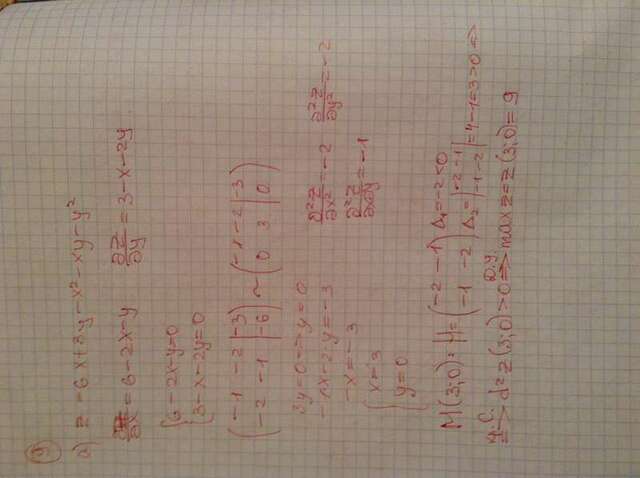 9
a) z = 6x+3y-x²-xy-y²
∂z/∂x = 6-2x-y ∂z/∂y = 3-x-2y
{6-2x-y=0
3-x-2y=0
(-1 -2 | -3
-2 -1 | -6) ~ (-1 -2 | -3
0 3 | 0)
3y=0 => y=0
-1·x-2·y=-3
-x=-3
{x=3
y=0
∂²z/∂x²=-2 ∂²z/∂y²=-2
∂²z/∂x∂y=-1
M(3;0): H=(-2 -1
-1 -2) Δ₁=-2<0
Δ₂=|-2 -1
-1 -2|=4-1=3>0 =>
=> d²z(3;0)>0 => max z=z(3;0)=9